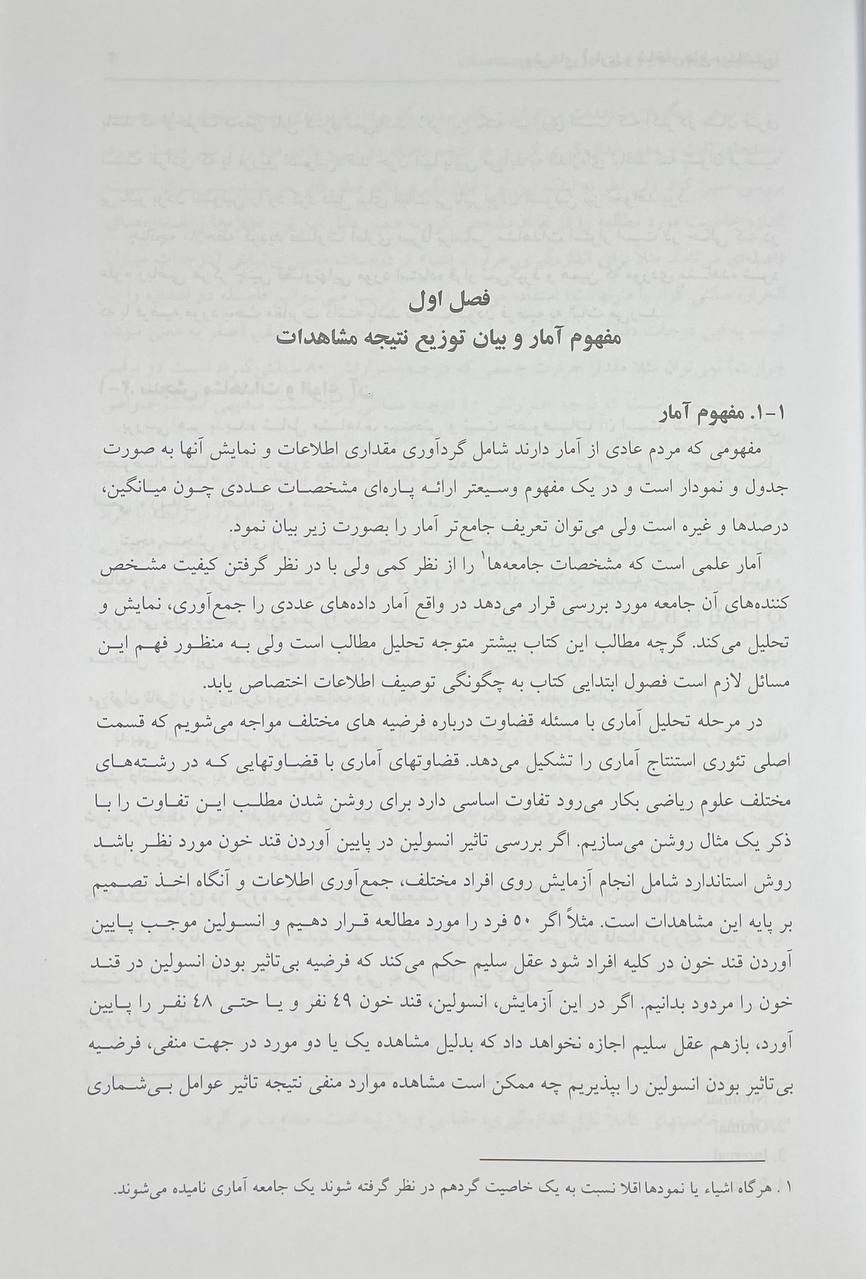 فصل اول
مفهوم آمار و بیان توزیع نتیجه مشاهدات
۱-۱. مفهوم آمار
مفهومی که مردم عادی از آمار دارند شامل گردآوری مقداری اطلاعات و نمایش آنها به صورت
جدول و نمودار است و در یک مفهوم وسیعتر ارائه پاره‌ای مشخصات عددی چون میانگین،
درصدها و غیره است ولی می‌توان تعریف جامع‌تر آمار را بصورت زیر بیان نمود.
آمار علمی است که مشخصات جامعه‌ها۱ را از نظر کمی ولی با در نظر گرفتن کیفیت مشخص
کننده‌های آن جامعه مورد بررسی قرار می‌دهد در واقع آمار داده‌های عددی را جمع‌آوری، نمایش و
تحلیل می‌کند. گرچه مطالب این کتاب بیشتر متوجه تحلیل مطالب است ولی به منظور فهم این
مسائل لازم است فصول ابتدایی کتاب به چگونگی توصیف اطلاعات اختصاص یابد.
در مرحله تحلیل آماری با مسئله قضاوت درباره فرضیه های مختلف مواجه می‌شویم که قسمت
اصلی تئوری استنتاج آماری را تشکیل می‌دهد. قضاوتهای آماری با قضاوتهایی که در رشته‌های
مختلف علوم ریاضی بکار می‌رود تفاوت اساسی دارد برای روشن شدن مطلب این تفاوت را با
ذکر یک مثال روشن می‌سازیم. اگر بررسی تاثیر انسولین در پایین آوردن قند خون مورد نظر باشد
روش استاندارد شامل انجام آزمایش روی افراد مختلف، جمع‌آوری اطلاعات و آنگاه اخذ تصمیم
بر پایه این مشاهدات است. مثلاً اگر ۵۰ فرد را مورد مطالعه قرار دهیم و انسولین موجب پایین
آوردن قند خون در کلیه افراد شود عقل سلیم حکم می‌کند که فرضیه بی‌تاثیر بودن انسولین در قند
خون را مردود بدانیم. اگر در این آزمایش، انسولین، قند خون ۴۹ نفر و یا حتی ۴۸ نفر را پایین
آورد، بازهم عقل سلیم اجازه نخواهد داد که بدلیل مشاهده یک یا دو مورد در جهت منفی، فرضیه
بی‌تاثیر بودن انسولین را بپذیریم چه ممکن است مشاهده موارد منفی نتیجه تاثیر عوامل بی‌شماری
۱ . هرگاه اشیاء یا نمودها اقلا نسبت به یک خاصیت گردهم در نظر گرفته شوند یک جامعه آماری نامیده می‌شوند.